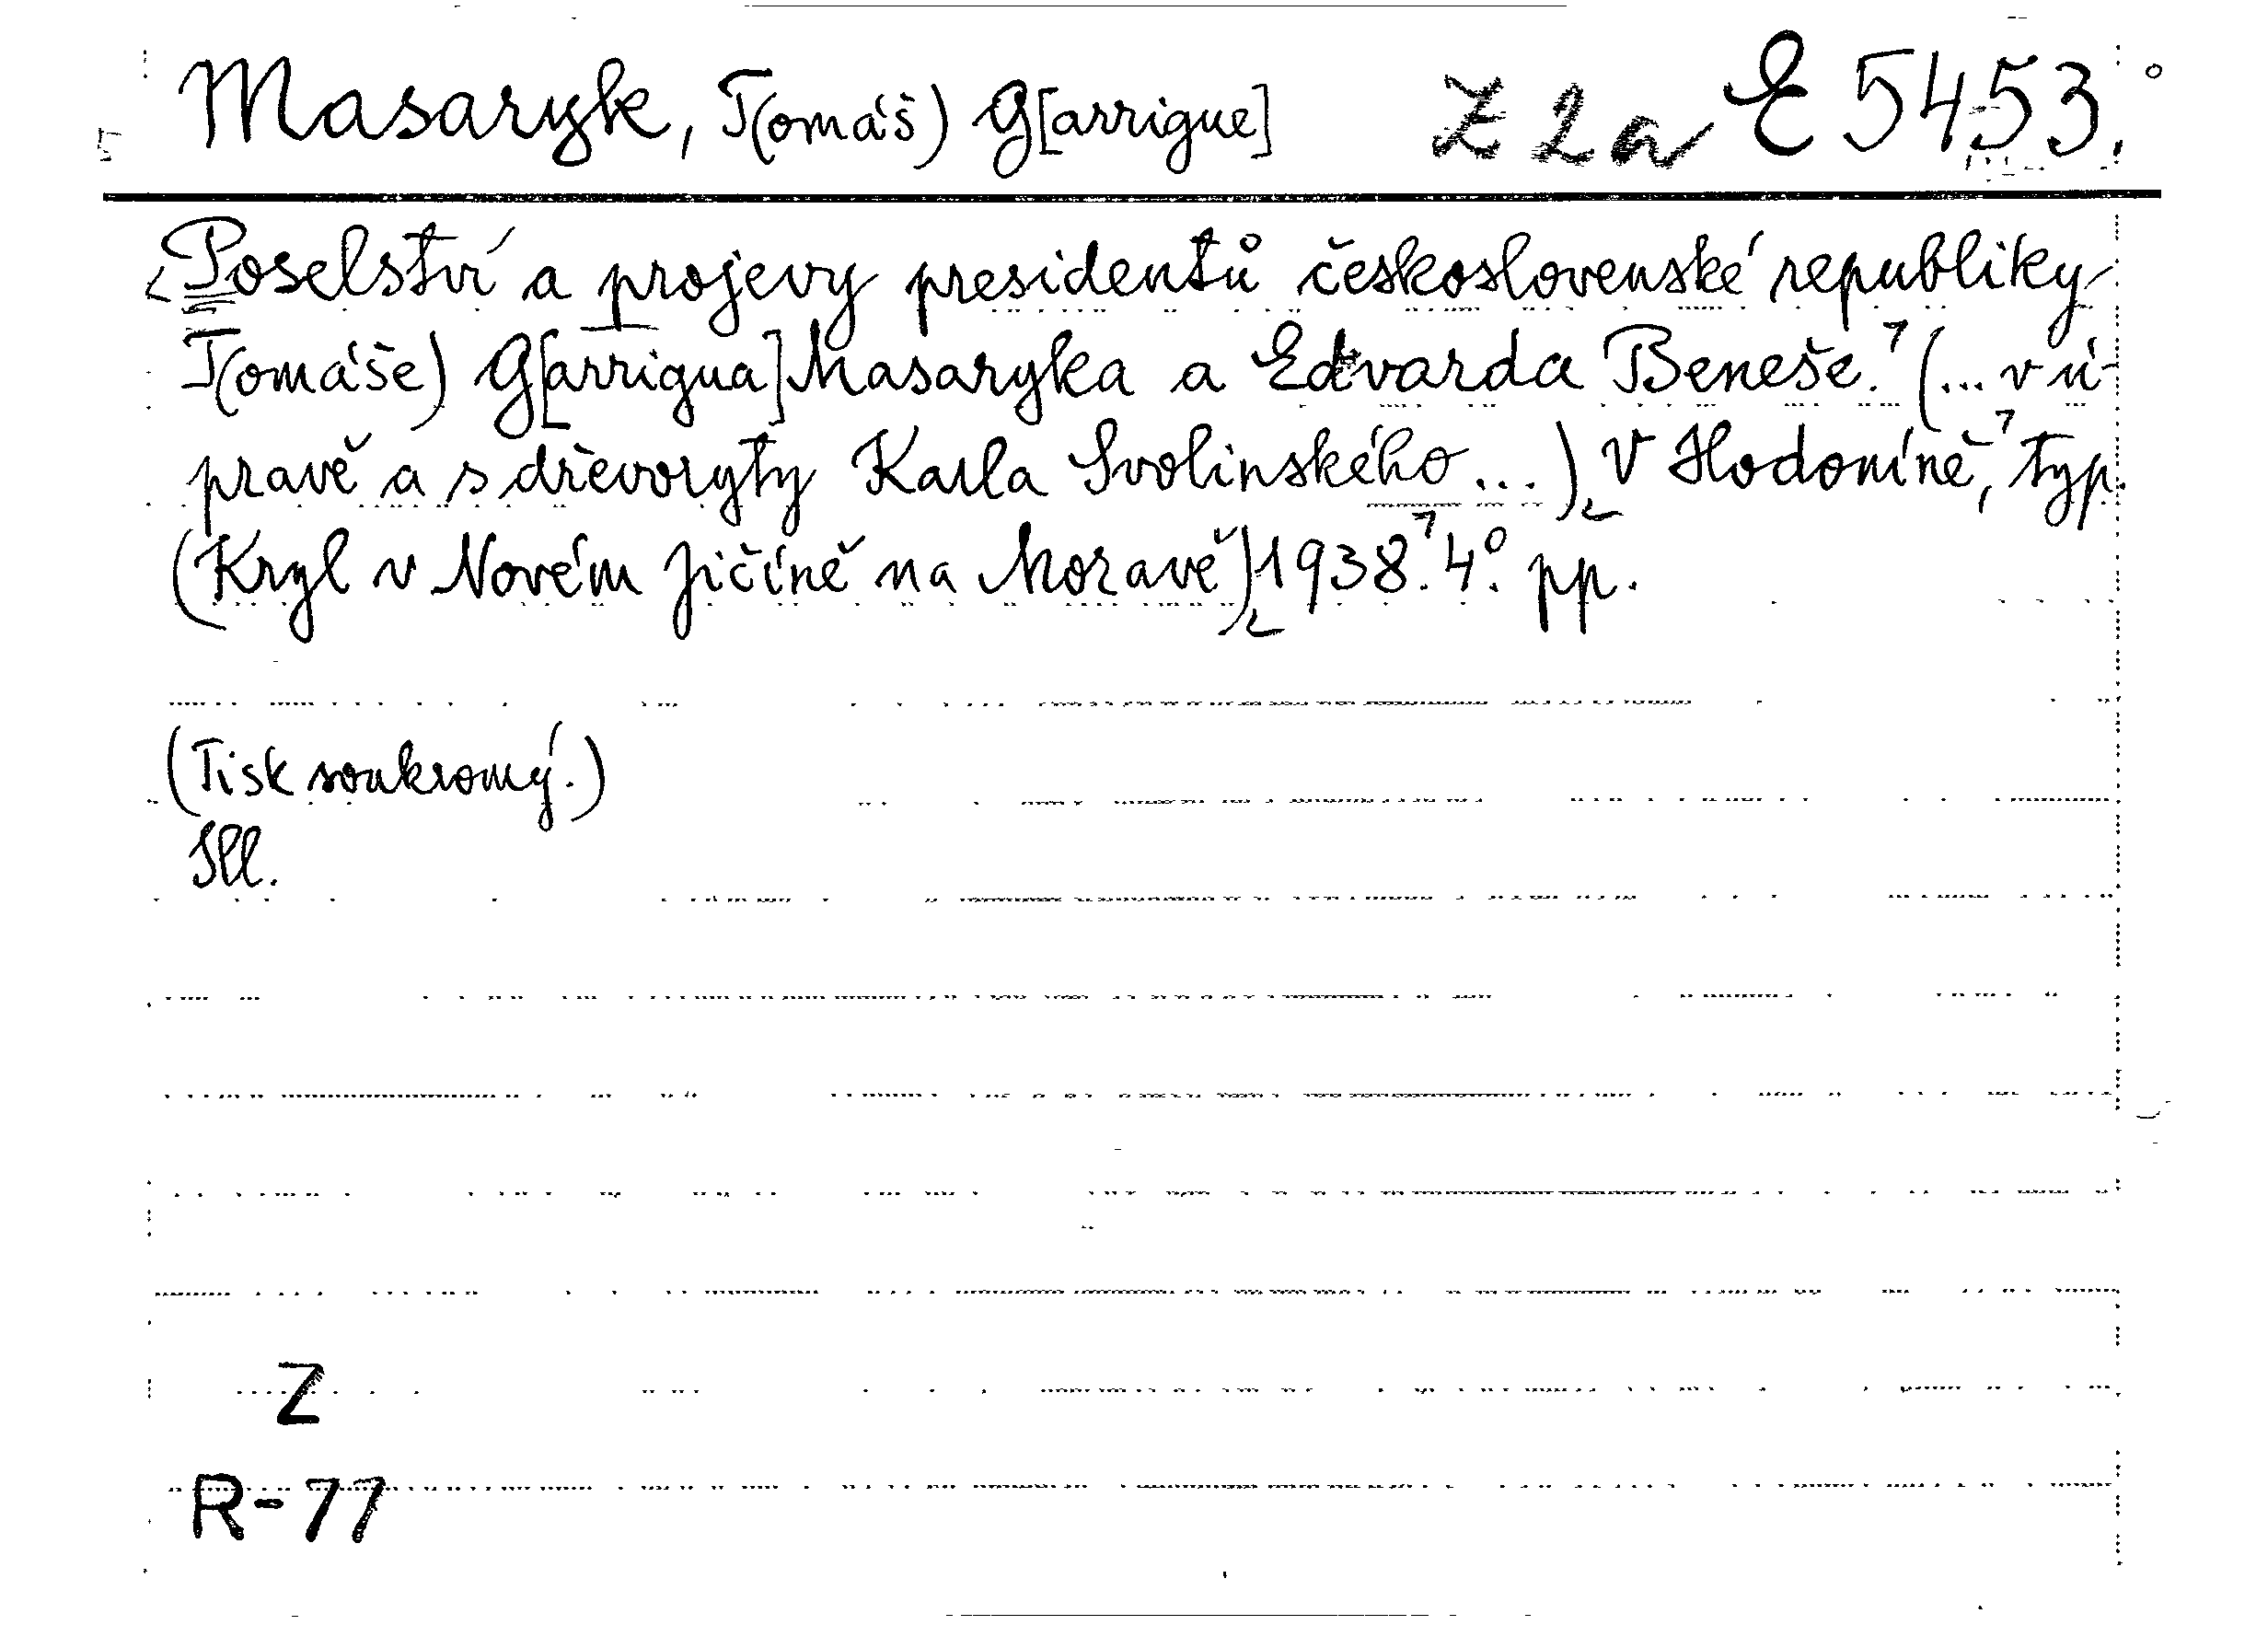 Masaryk, T(omáš) G[arrigue] Z 2a E 5453.
Poselství a projevy presidentů československé republiky
T(omáše) G[arrigua] Masaryka a Edvarda Beneše. (... v ú-
pravě a s dřevoryty Karla Svolinského ...) V Hodoníně, typ.
(Kryl v Novém Jičíně na Moravě) 1938. 4°. pp.
(Tisk soukromý.)
Ill.
Z
R-77